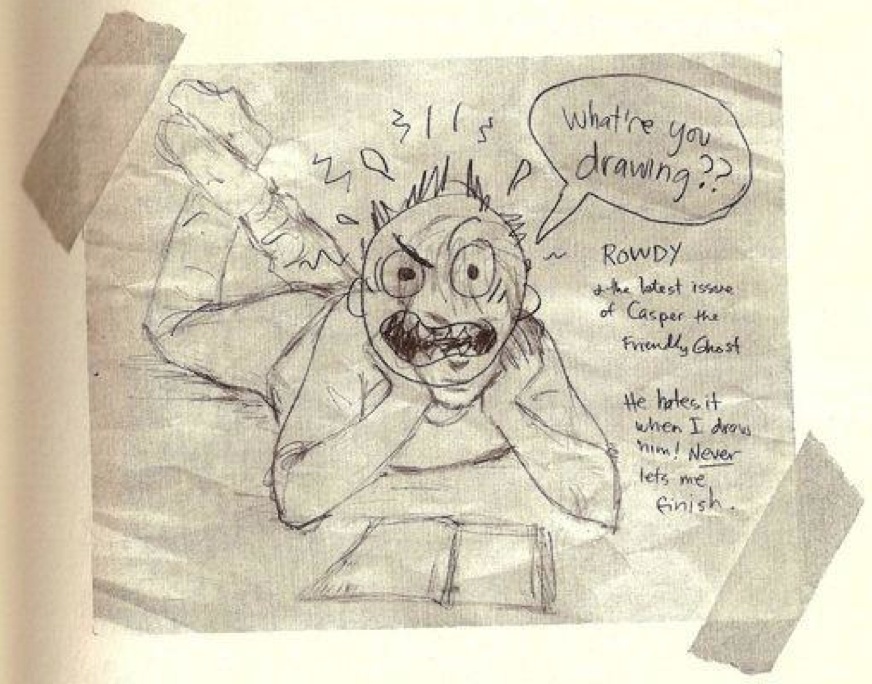 What're you
drawing??
ROWDY
& the latest issue
of Casper the
Friendly Ghost
He hates it
when I draw
him! Never
lets me
finish.